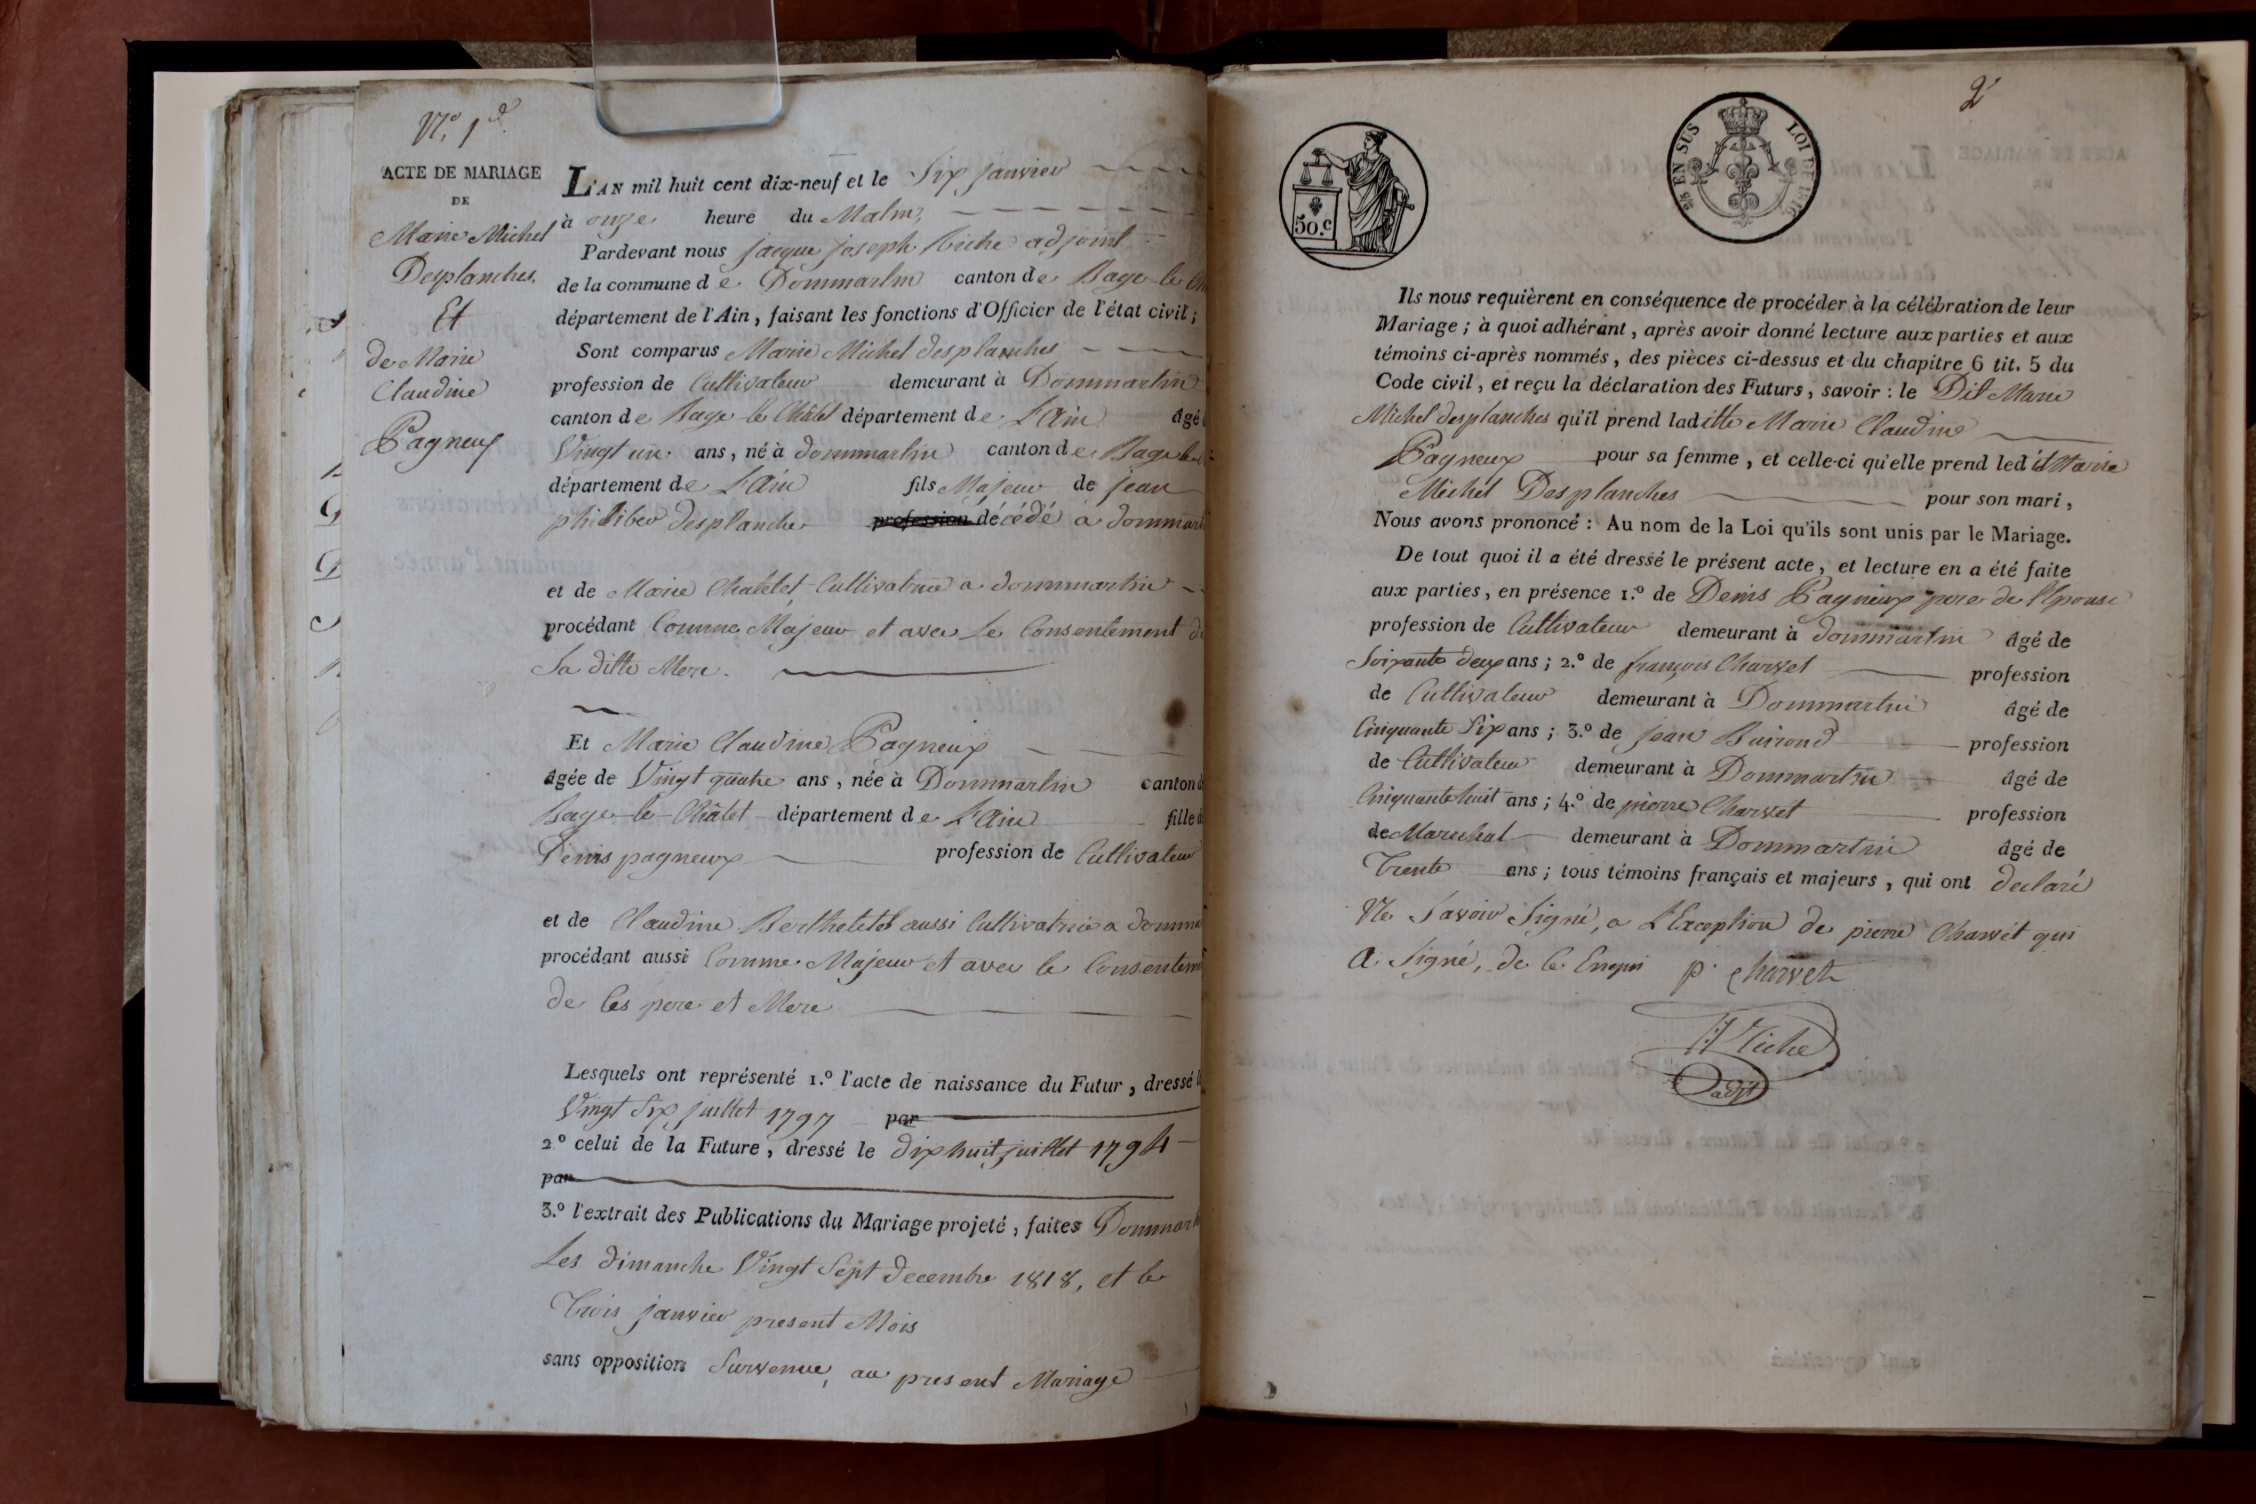 N.o 1
ACTE DE MARIAGE
DE
Marie Michel
Desplanches.
Et
de Marie
Claudine
Pagneux
L'AN mil huit cent dix-neuf et le Six janvier
à onze heure du Matin,
Pardevant nous jacque joseph Riche adjoint
de la commune de Dommartin canton de Bage le
département de l'Ain, faisant les fonctions d'Officier de l'état civil;
Sont comparus Marie Michel desplanches
profession de Cultivateur demeurant à Dommartin
canton de Bage le Châlet département de L'Ain âgé
Vingt un ans, né à dommartin canton de Bage le
département de L'Ain fils Majeur de jean
philiber desplanche profession décédé a dommart
et de Marie Chatelet Cultivatrice a dommartin
procédant Comme Majeur et avec Le Consentement de
Sa ditte Mere.
Et Marie Claudine Pagneux
âgée de Vingt quatre ans, née à Dommartin canton de
Bage-le-Châlet département de L'Ain fille d
Denis pagneux profession de Cultivateur
et de Claudine Berthelet aussi Cultivatrice a domma
procédant aussi Comme Majeur et avec le Consentem
de Ces pere et Mere
Lesquels ont représenté 1.º l'acte de naissance du Futur, dressé l
Vingt Six juillet 1797 par
2º celui de la Future, dressé le dix huit juillet 1794
par
3.º l'extrait des Publications du Mariage projeté, faites Dommart
Les dimanche Vingt Sept decembre 1818, et le
Trois janvier present Mois
sans opposition Survenue, au present Mariage
2
50.c
EN SUS
LOI DE
Ils nous requièrent en conséquence de procéder à la célébration de leur
Mariage; à quoi adhérant, après avoir donné lecture aux parties et aux
témoins ci-après nommés, des pièces ci-dessus et du chapitre 6 tit. 5 du
Code civil, et reçu la déclaration des Futurs, savoir: le Dit Marie
Michel desplanches qu'il prend laditte Marie Claudine
Pagneux pour sa femme, et celle-ci qu'elle prend ledit Marie
Michel Desplanches pour son mari,
Nous avons prononcé: Au nom de la Loi qu'ils sont unis par le Mariage.
De tout quoi il a été dressé le présent acte, et lecture en a été faite
aux parties, en présence 1.º de Denis Pagneux pere de l'Epouse
profession de Cultivateur demeurant à dommartin âgé de
Soixante deux ans; 2.º de françois Charvet profession
de Cultivateur demeurant à Dommartin âgé de
Cinquante Six ans; 3.º de jean Buirond profession
de Cultivateur demeurant à Dommartin âgé de
Cinquante huit ans; 4.º de pierre Charvet profession
de Marechal demeurant à Dommartin âgé de
Trente ans; tous témoins français et majeurs, qui ont declaré
Ne Savoir Signé, a L'Exception de pierre Charvet qui
A Signé, de Ce Enquis p. Charvet
Riche
adjt